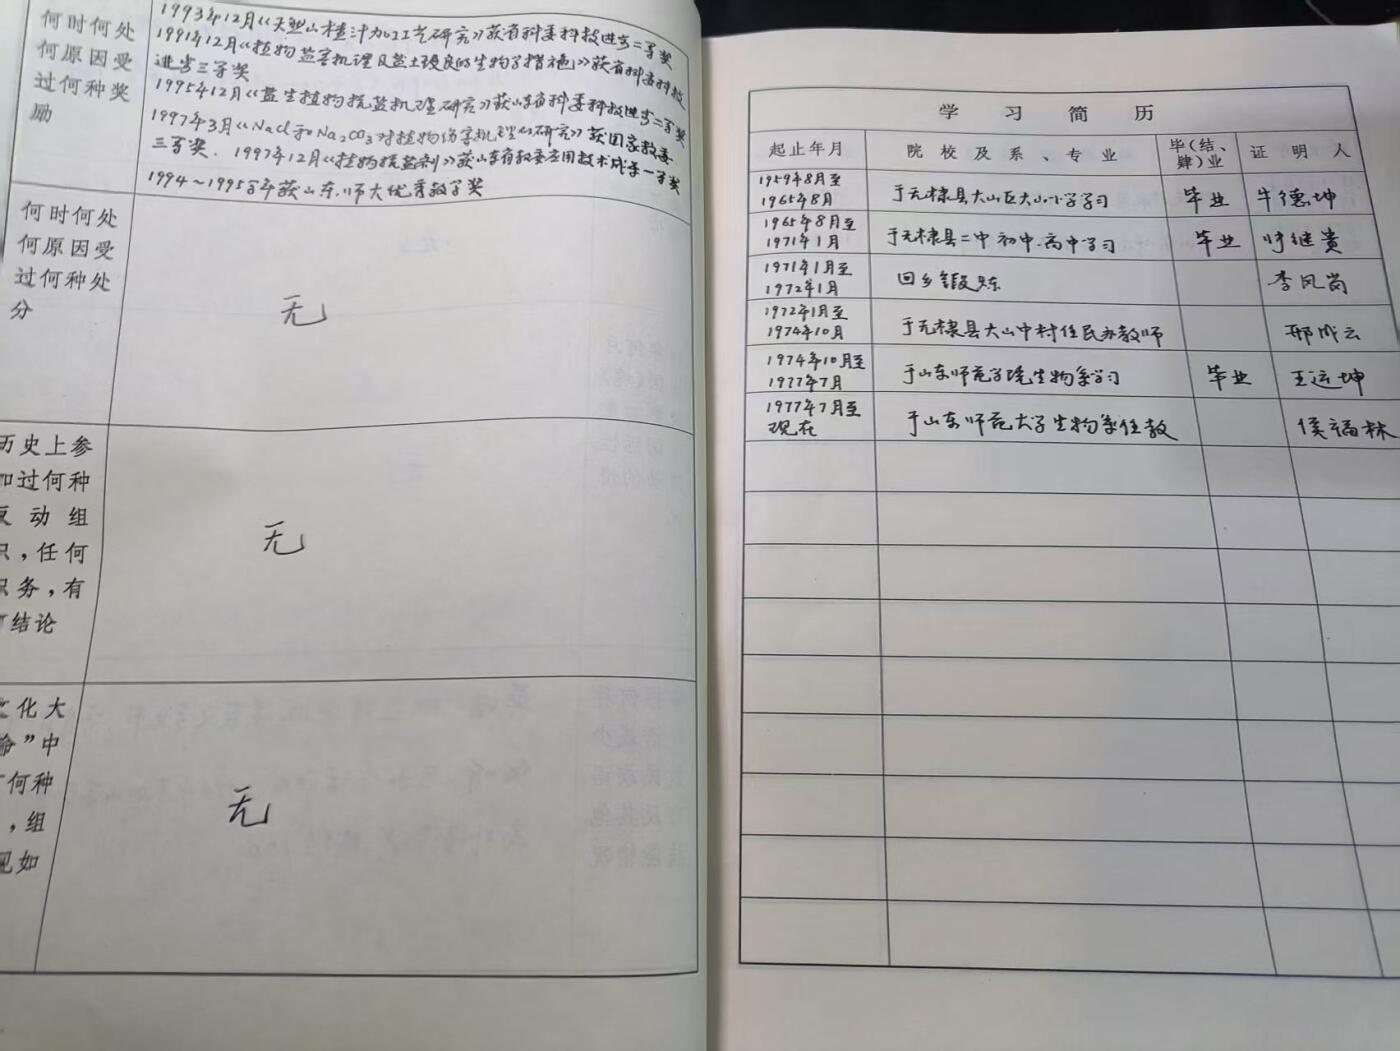 何时何处
何原因受
过何种奖
励
1993年12月《天然山楂汁加工工艺研究》获省科委科技进步二等奖
1991年12月《植物盐害机理及盐土改良的生物学措施》获省科委科技
进步三等奖
1995年12月《盐生植物抗盐机理研究》获山东省科委科技进步二等奖
1997年3月《NaCl和Na₂CO₃对植物伤害机理的研究》获国家教委
三等奖. 1997年12月《植物抗盐剂》获山东省教委应用技术成果一等奖
1994~1995年获山东师大优秀教学奖
何时何处
何原因受
过何种处
分
无
历史上参
加过何种
反动组
织,任何
职务,有
何结论
无
文化大
命”中
何种
,组
见如
无
学习简历
起止年月 院校及系、专业 毕(结、肄)业 证明人
1959年8月至
1965年8月 于无棣县大山区大山小学学习 毕业 牛德坤
1965年8月至
1971年1月 于无棣县二中初中.高中学习 毕业 继贵
1971年1月至
1972年1月 回乡锻炼 李凤岗
1972年1月至
1974年10月 于无棣县大山中村任民办教师 邢成云
1974年10月至
1977年7月 于山东师范学院生物系学习 毕业 王运坤
1977年7月至
现在 于山东师范大学生物系任教 侯福林